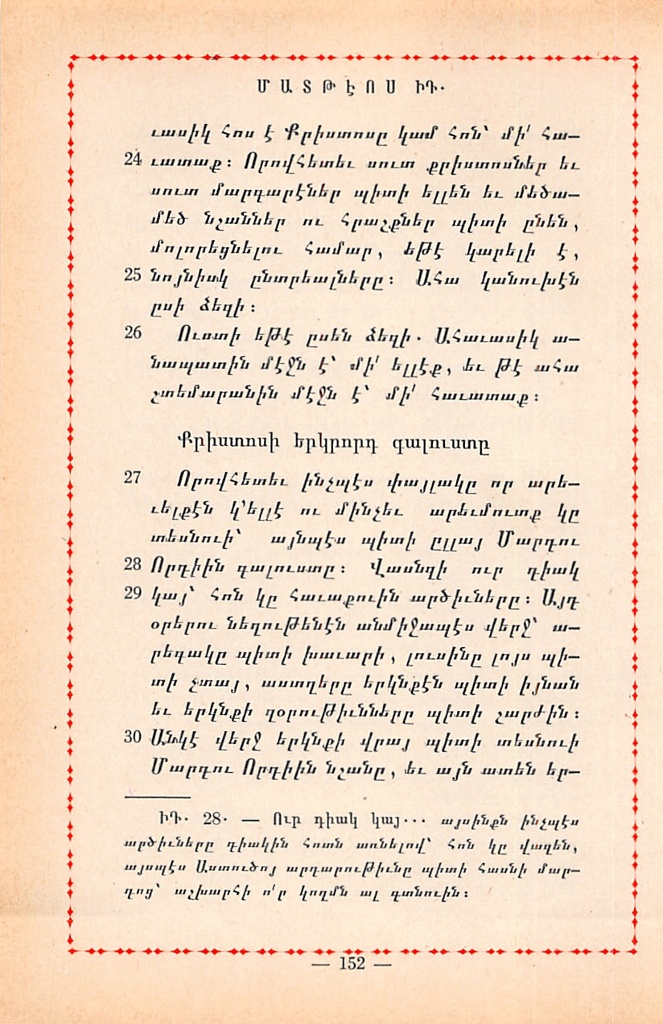 ՄԱՏԹԷՈՍ ԻԴ.
ւասիկ հոս է Քրիստոսը կամ հոն՝ մի՛ հա-
24 ւատաք։ Որովհետեւ սուտ քրիստոսներ եւ
սուտ մարդարէներ պիտի ելլեն եւ մեծա-
մեծ նշաններ ու հրաշքներ պիտի ընեն,
մոլորեցնելու համար, եթէ կարելի է,
25 նոյնիսկ ընտրեալները։ Ահա կանուխէն
ըսի ձեզի։
26 Ուստի եթէ ըսեն ձեզի. Ահաւասիկ ա-
նապատին մէջն է՝ մի՛ ելլէք, եւ թէ ահա
շտեմարանին մէջն է՝ մի՛ հաւատաք։
Քրիստոսի երկրորդ գալուստը
27 Որովհետեւ ինչպէս փայլակը որ արե-
ւելքէն կ՚ելլէ ու մինչեւ արեւմուտք կը
տեսնուի՝ այնպէս պիտի ըլլայ Մարդու
28 Որդիին գալուստը։ Վասնզի ուր դիակ
29 կայ՝ հոն կը հաւաքուին արծիւները։ Այդ
օրերու նեղութենէն անմիջապէս վերջ՝ ա-
րեգակը պիտի խաւարի, լուսինը լոյս պի-
տի չտայ, աստղերը երկնքէն պիտի իյնան
եւ երկնքի զօրութիւնները պիտի շարժին։
30 Անկէ վերջ երկնքի վրայ պիտի տեսնուի
Մարդու Որդիին նշանը, եւ այն ատեն եր-
ԻԴ. 28. — Ուր դիակ կայ... այսինքն ինչպէս
արծիւները դիակին հոտն առնելով՝ հոն կը վազեն,
այսպէս Աստուծոյ արդարութիւնը պիտի հասնի մար-
դոց՝ աշխարհի ո՛ր կողմն ալ գտնուին։
— 152 —